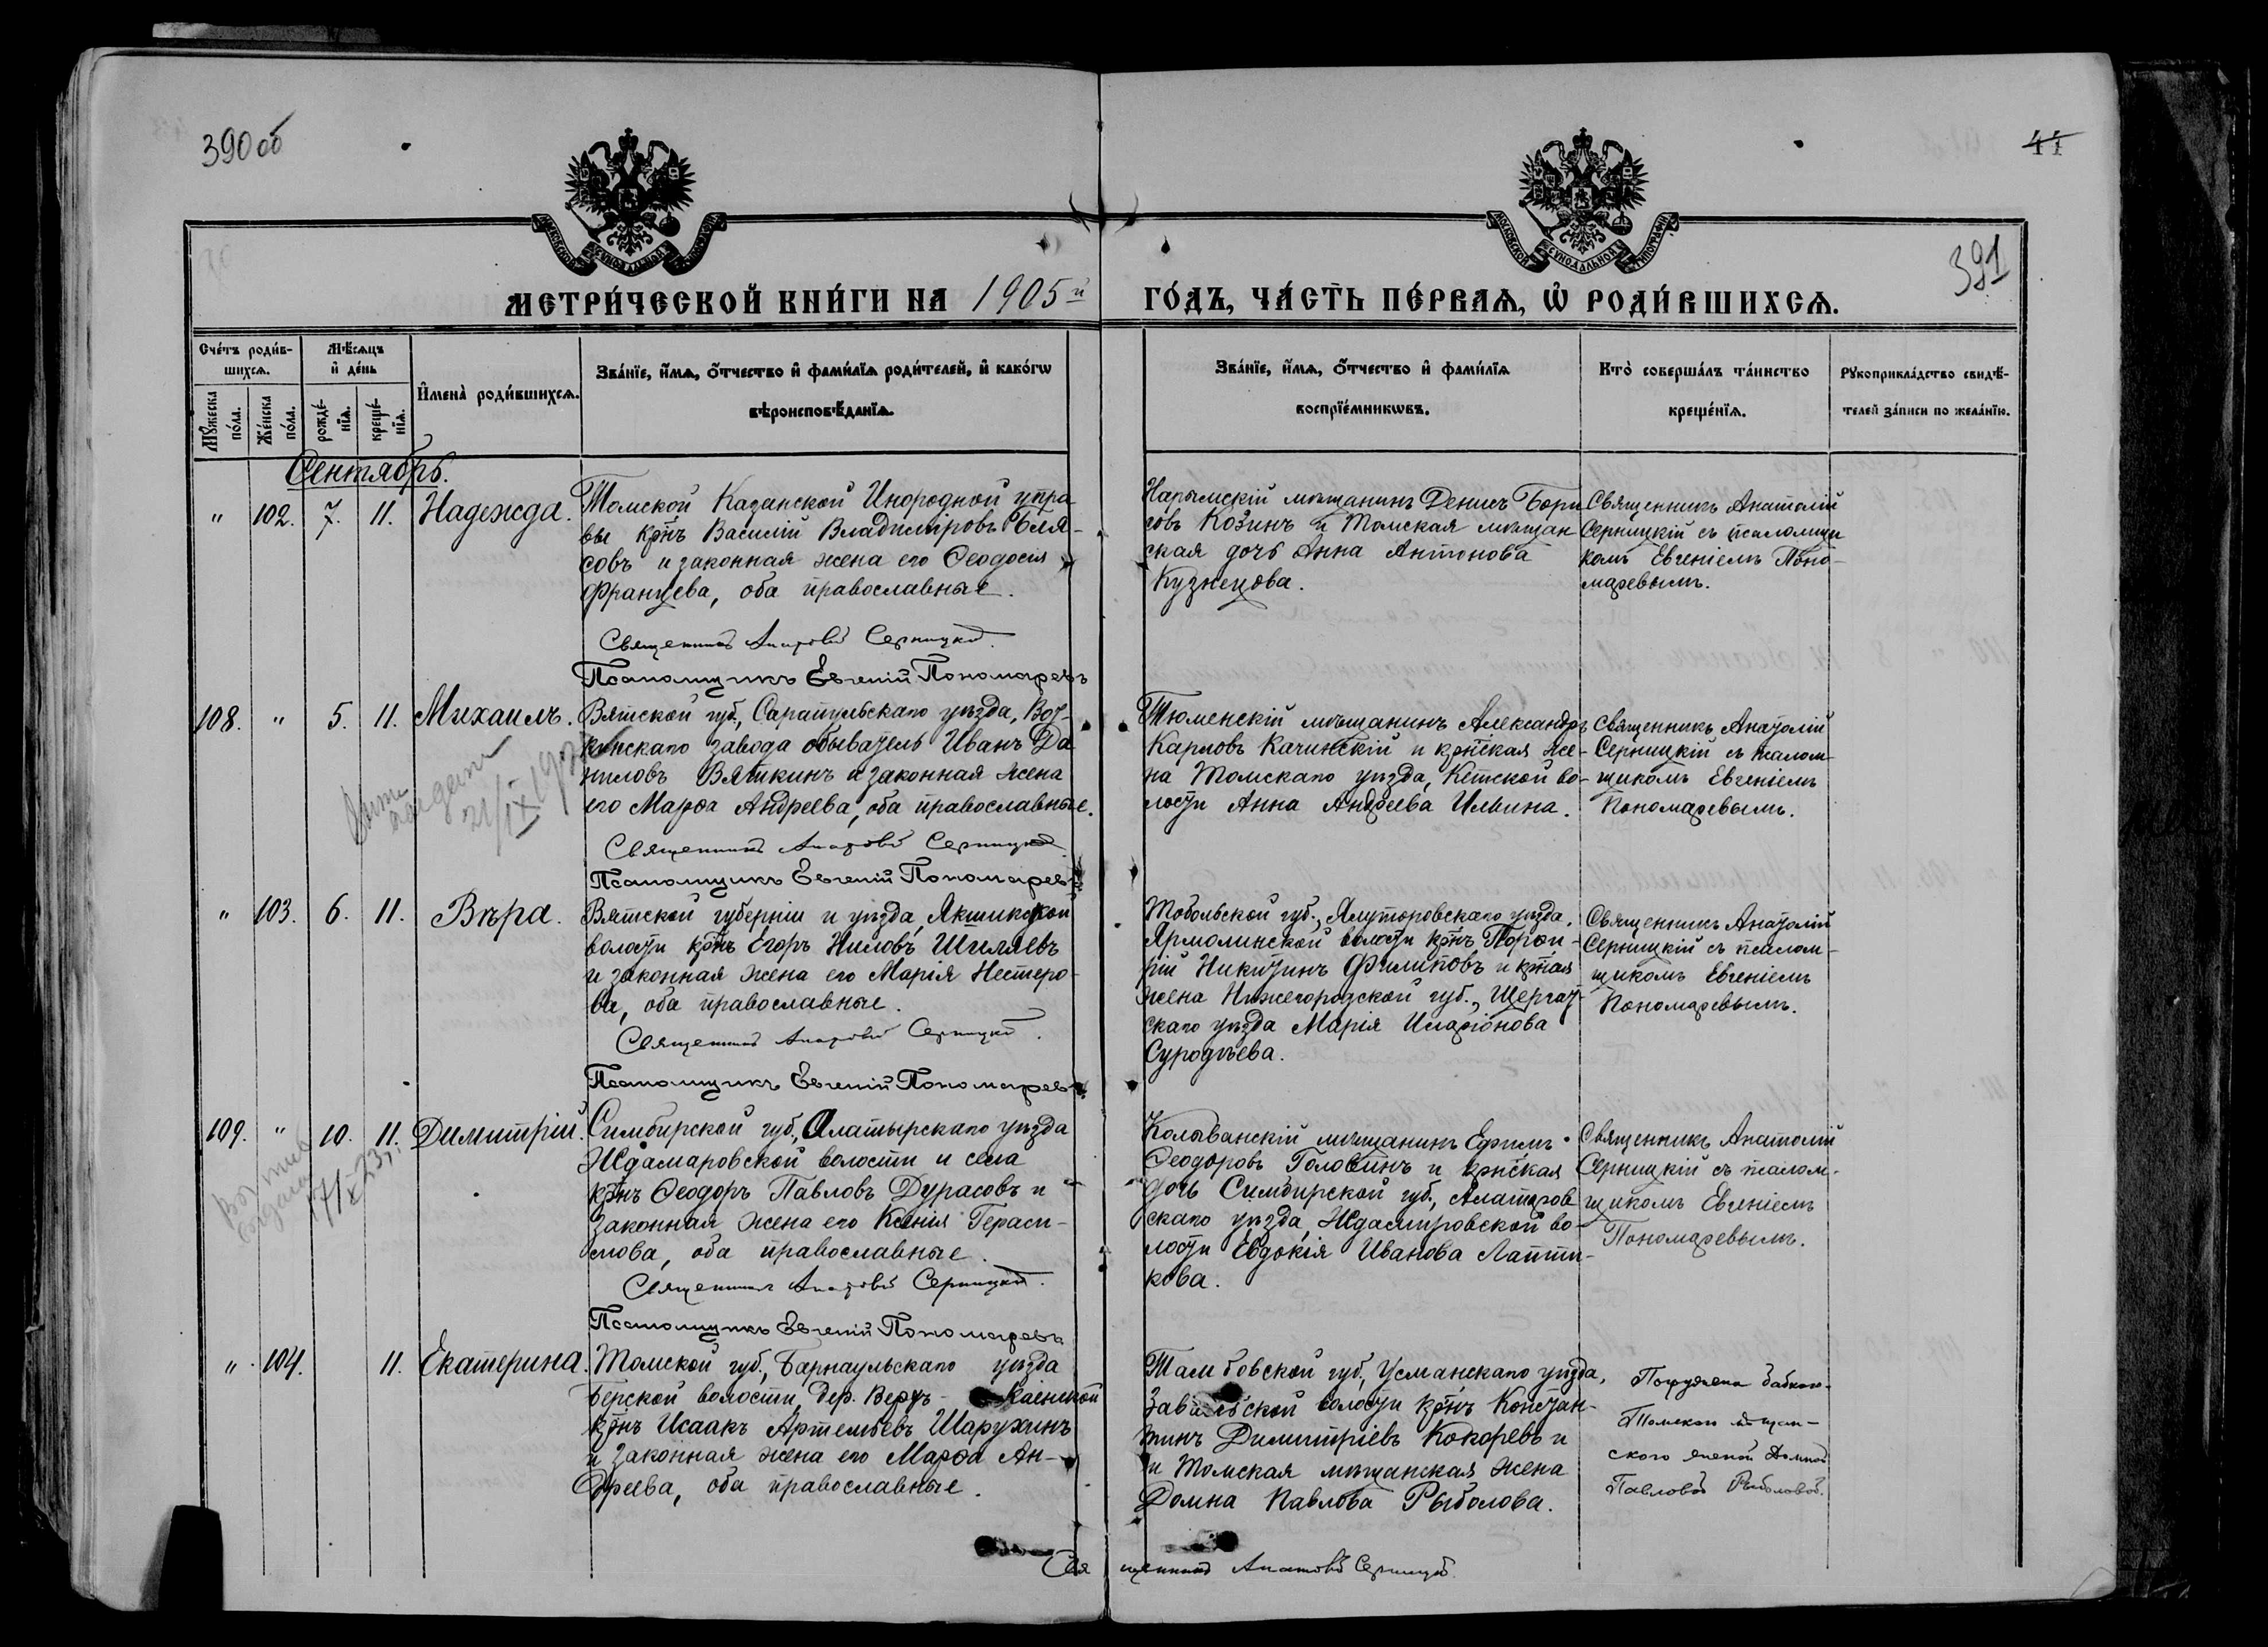 390 об
41
391
МОСКОВСКОЙ СѴНОДАЛЬНОЙ ТИПОГРАФІИ
МОСКОВСКОЙ СѴНОДАЛЬНОЙ ТИПОГРАФІИ
МЕТРИ́ЧЕСКОЙ КНИ́ГИ НА 1905й ГО́ДЪ, ЧА́СТЬ ПЕ́РВАѦ, Ѿ РОДИ́ВШИХСѦ.
Сче́тъ роди́в-
шихсѧ.
Мѣ́сѧцъ
и҆ де́нь
Мꙋ́жеска
по́ла.
Же́нска
по́ла.
рожде́-
нїѧ.
креще́-
нїѧ.
И҆мена̀ роди́вшихсѧ.
Зва́нїе, и҆́мѧ, ѻ҆́тчество и҆ фами́лїѧ роди́телей, и҆ како́гѡ
вѣроисповѣ́данїѧ.
Зва́нїе, и҆́мѧ, ѻ҆́тчество и҆ фами́лїѧ
воспрїе́мникѡвъ.
Кто̀ соверша́лъ та́инство
креще́нїѧ.
Рꙋкоприкла́дство свидѣ́-
телей за́писи по жела́нїю.
Сентябрь.
" 102. 7. 11. Надежда.
Томской Казанской Инородной упра
вы крнъ Василій Владиміровъ Беля-
совъ и законная жена его Ѳеодосія
Францева, оба православные.
Священникъ Анатолій Серницкій.
Псаломщикъ Евгеній Пономаревъ
Нарымскій мѣщанинъ Денисъ Бори
совъ Козинъ и Томская мѣщан
ская дочь Анна Антонова
Кузнецова.
Священникъ Анатолій
Серницкій съ псаломщи
комъ Евгеніемъ Поно-
маревымъ.
108. " 5. 11. Михаилъ.
21/IX
Вятской губ., Сарапульскаго уѣзда, Вот-
кинскаго завода обыватель Иванъ Да
ниловъ Вяткинъ и законная жена
его Марѳа Андреева, оба православные.
Священникъ Анатолій Серницкій
Псаломщикъ Евгеній Пономаревъ
Тюменскій мѣщанинъ Александръ
Карловъ Качинскій и крнская же-
на Томскаго уѣзда, Кетской во-
лости Анна Андреева Ильина.
Священникъ Анатолій
Серницкій съ псалом-
щикомъ Евгеніемъ
Пономаревымъ.
" 103. 6. 11. Вѣра.
Вятской губерніи и уѣзда, Якшинской
волости крнъ Егоръ Ниловъ Шиляевъ
и законная жена его Марія Нестеро-
ва, оба православные.
Священникъ Анатолій Серницкій.
Псаломщикъ Евгеній Пономаревъ.
Тобольской губ., Ялуторовскаго уѣзда,
Ярмолинской волости крнъ Порфи-
рій Никитинъ Филиповъ и крная
жена Нижегородской губ.,
скаго уѣзда Марія Иларіонова
Суродѣева.
Священникъ Анатолій
Серницкій съ псалом-
щикомъ Евгеніемъ
Пономаревымъ.
109. " 10. 11. Димитрій.
17/X 23 г.
Симбирской губ., Алатырскаго уѣзда
Ждамаровской волости и села
крнъ Ѳеодоръ Павловъ Дурасовъ и
законная жена его Ксенія Гераси-
мова, оба православные.
Священникъ Анатолій Серницкій.
Псаломщикъ Евгеній Пономаревъ
Колыванскій мѣщанинъ Ефимъ
Ѳеодоровъ Головинъ и крнская
дочь Симбирской губ., Алатыров
скаго уѣзда, Ждамировской во-
лости Евдокія Иванова Лапти-
кова.
Священникъ Анатолій
Серницкій съ псалом-
щикомъ Евгеніемъ
Пономаревымъ.
" 104. 11. Екатерина.
Томской губ., Барнаульскаго уѣзда
Бердской волости, дер. Верхъ-
крнъ Исаакъ Артемьевъ Шарухинъ
и законная жена его Марѳа Ан-
дреева, оба православные.
Тамбовской губ., Усманскаго уѣзда,
волости крнъ Констан-
тинъ Димитріевъ Кокоревъ и
и Томская мѣщанская жена
Домна Павлова Рыболова.
Погружена бабкою-
Томской мѣщан-
ского женой Домной
Павловой Рыболовой.
Священникъ Анатолій Серницкій.